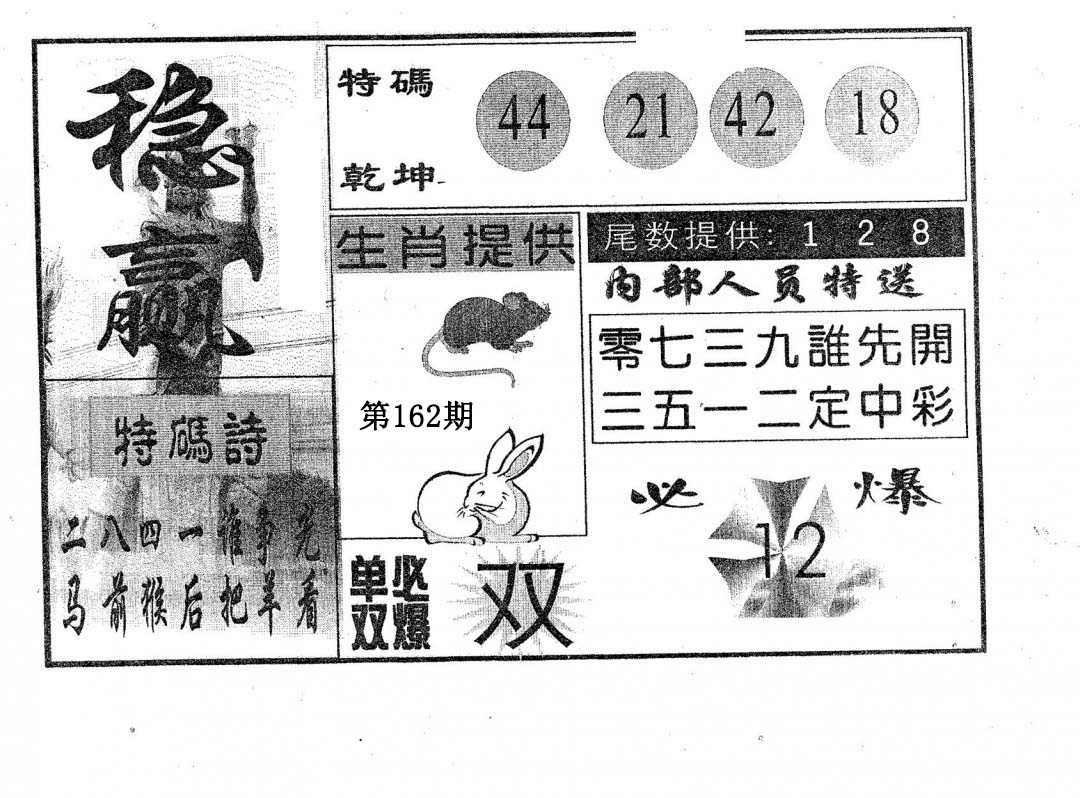 稳赢
特碼
乾坤
44 21 42 18
生肖提供
第162期
尾数提供: 1 2 8
内部人员特送
零七三九誰先開
三五一二定中彩
特碼詩
二八四一谁争先
马前猴后把羊看
单双必爆
双
必爆
12